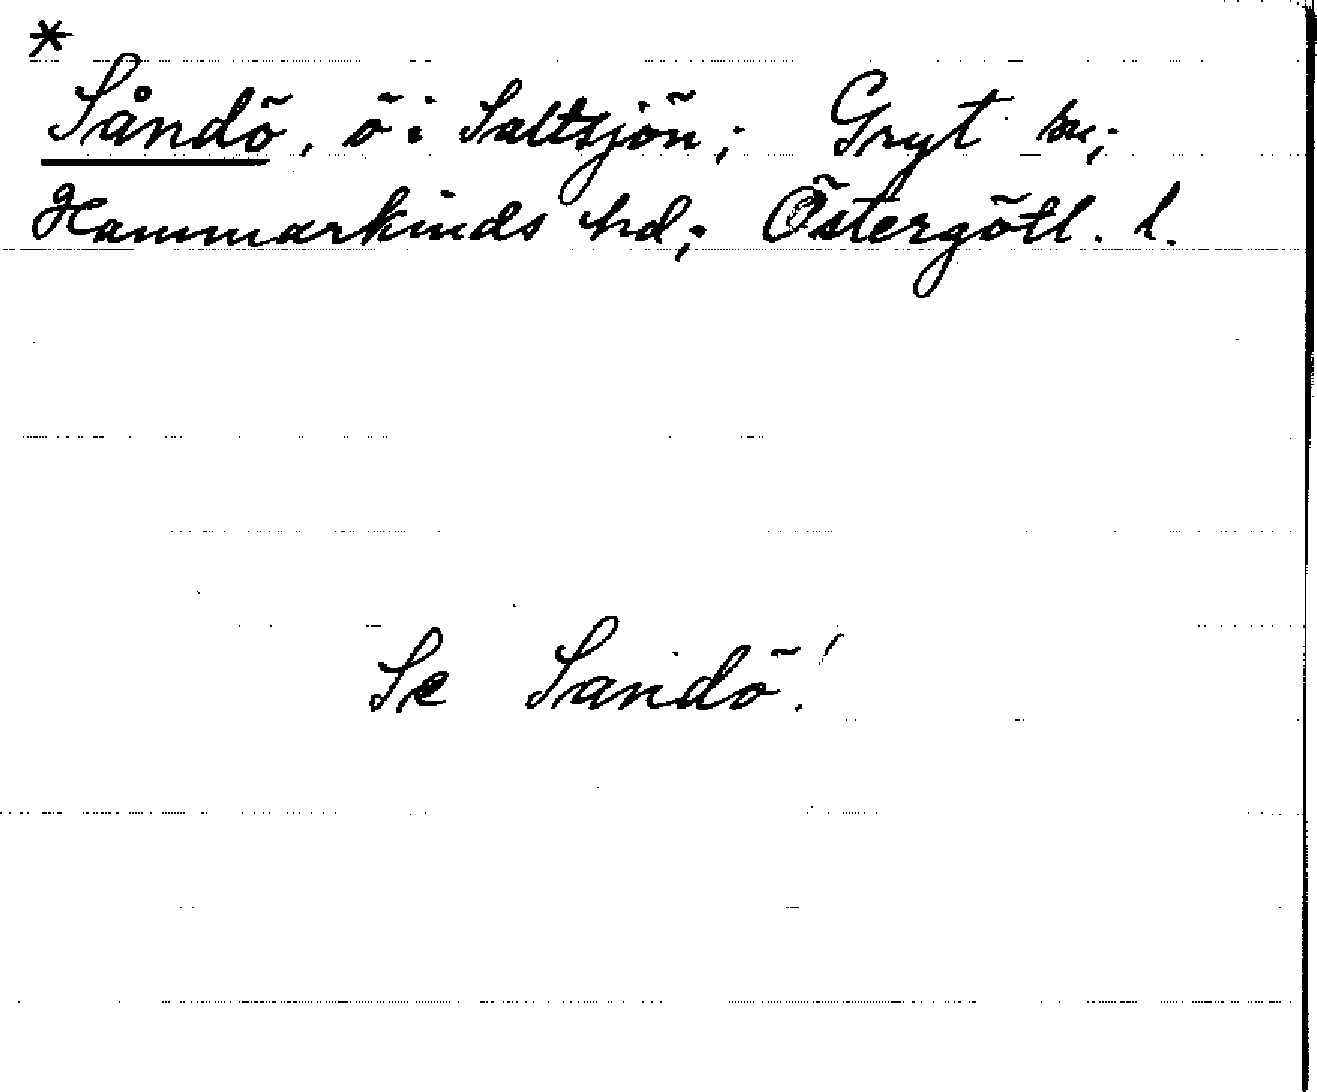 *
Såndö, ö i Saltsjön; Gryt sn;
Hammarkinds hd; Östergötl. l.
Se Sandö!